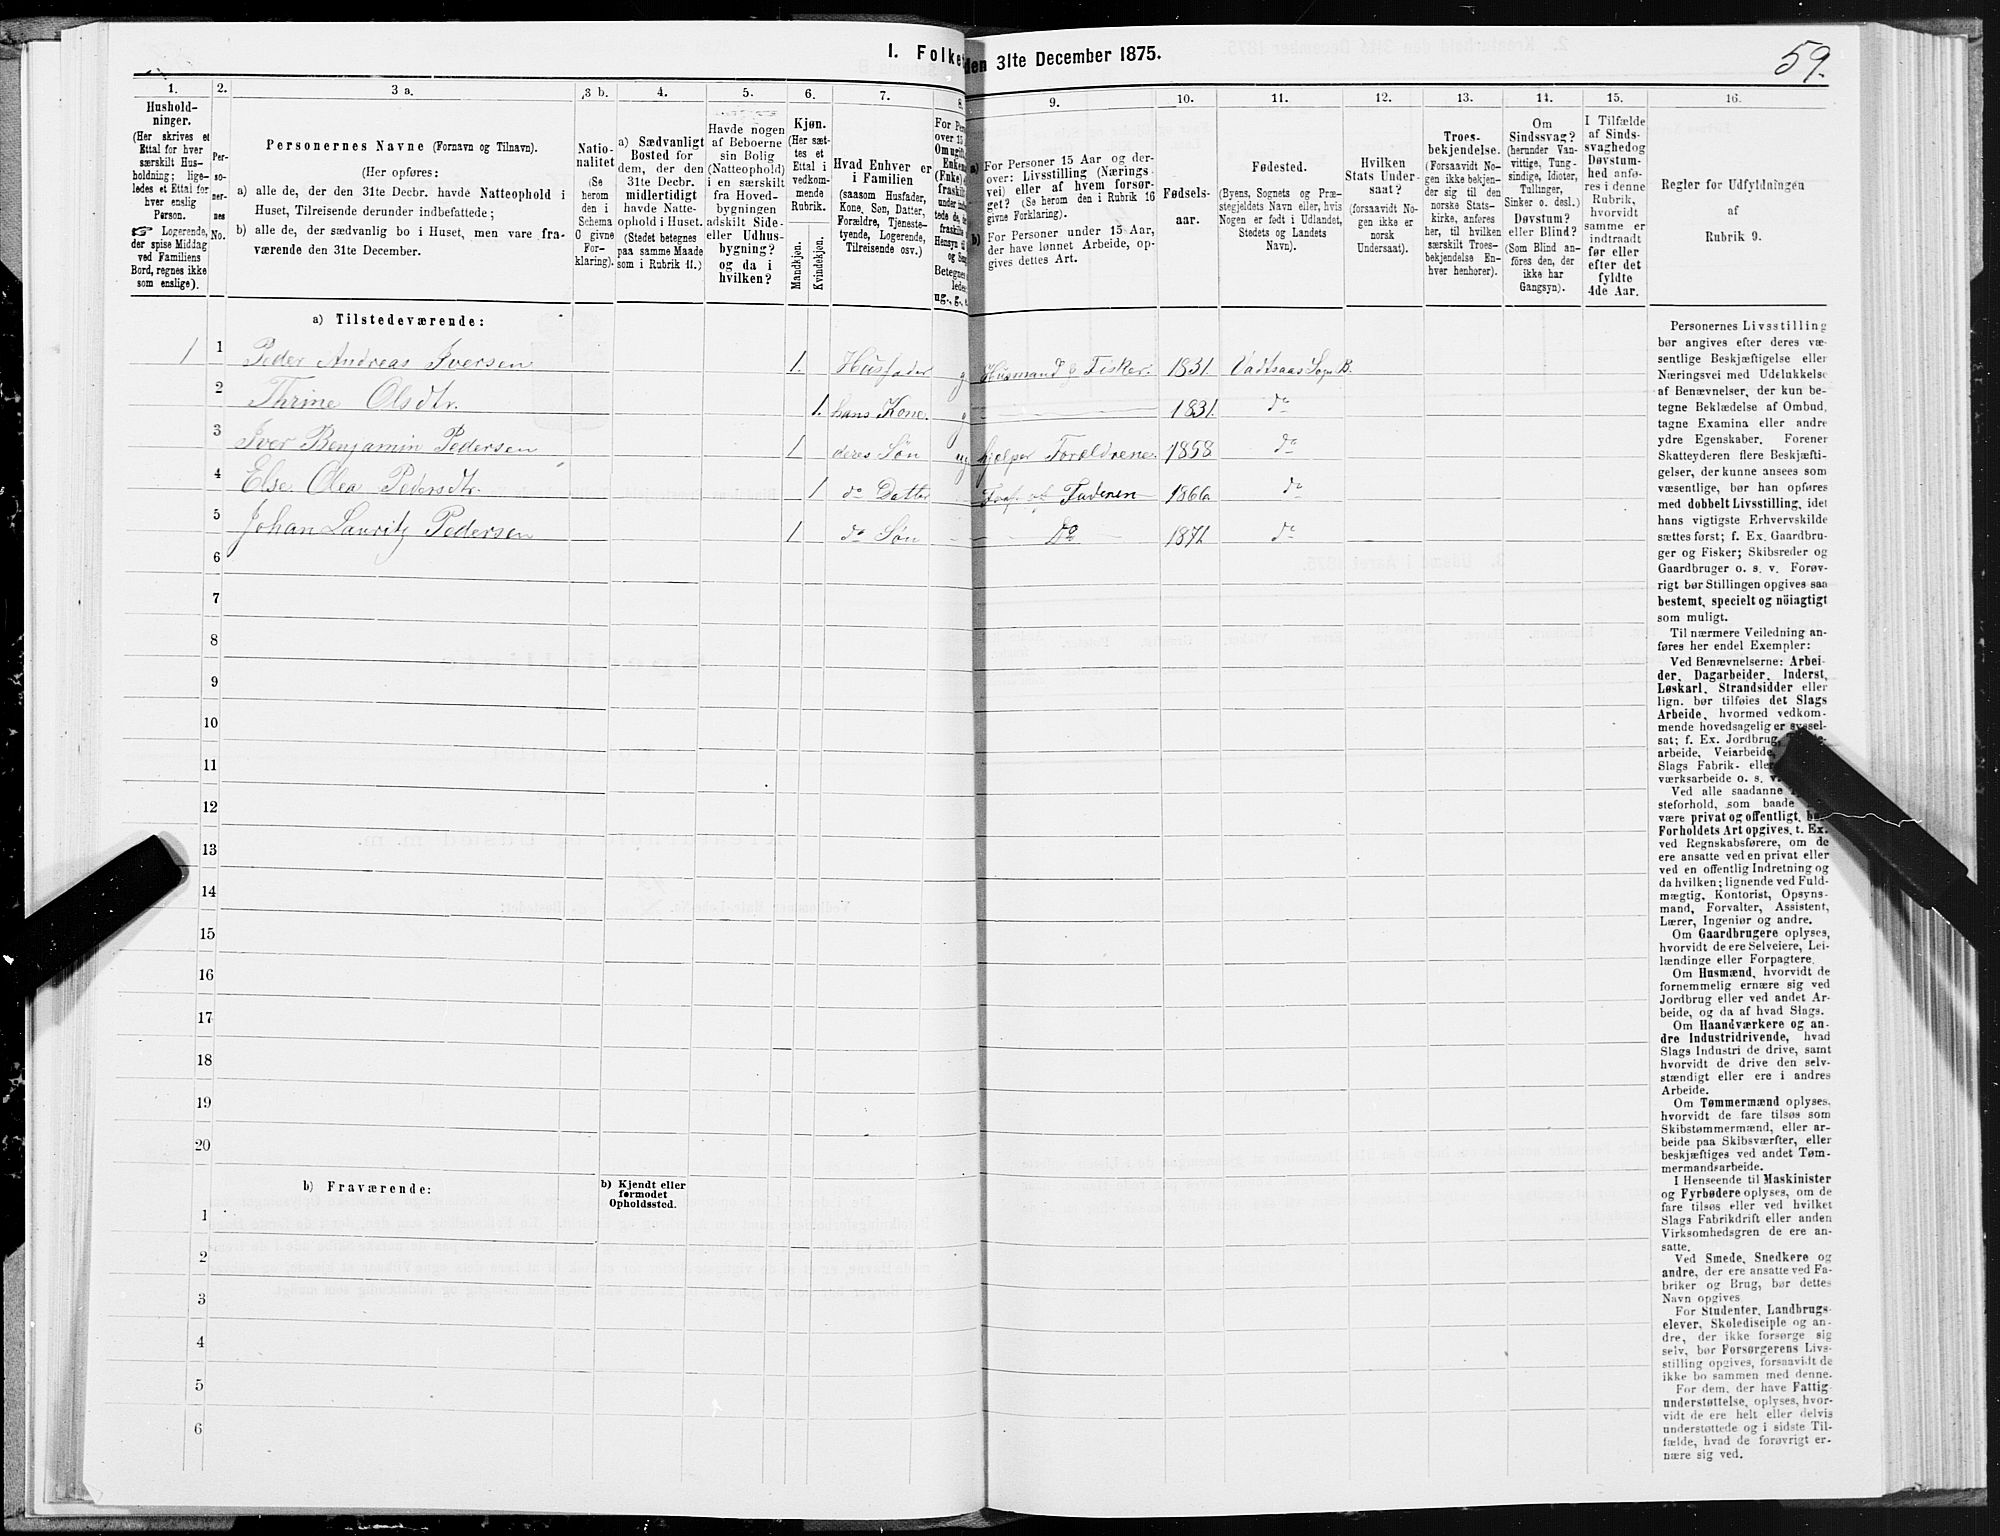 I. Folke den 31te December 1875.
59.
1. 2. 3 a. 3 b. 4. 5. 6. 7. 8. 9. 10. 11. 12. 13. 14. 15. 16.
Hushold-
ninger.
(Her skrives et
Ettal for hver
særskilt Hus-
holdning; lige-
ledes et Ettal for
hver enslig
Person.
☞ Logerende,
der spise Middag
ved Familiens
Bord, regnes ikke
som enslige).
Per-
so-
ner-
nes
No.
Personernes Navne (Fornavn og Tilnavn).
(Her opføres:
a) alle de, der den 31te Decbr. havde Natteophold i
Huset, Tilreisende derunder indbefattede;
b) alle de, der sædvanlig bo i Huset, men vare fra-
værende den 31te December.
Natio-
nalitet
(Se
herom
den i
Schema
C givne
For-
klaring).
a) Sædvanligt
Bosted for
dem, der den
31te Decbr.
midlertidigt
havde Natte-
ophold i Huset.
(Stedet betegnes
paa samme Maade
som i Rubrik 11.)
Havde nogen
af Beboerne
sin Bolig
(Natteophold)
i en særskilt
fra Hoved-
bygningen
adskilt Side-
eller Udhus-
bygning?
og da i
hvilken?
Kjøn.
(Her sæt-
tes et
Ettal i
vedkom-
mende
Rubrik.
Mandkjøn.
Kvindekjøn.
Hvad Enhver er
i Familien
(saasom Husfader,
Kone, Søn, Datter,
Forældre, Tjeneste-
tyende, Logerende,
Tilreisende osv.)
For Per
over 15
Omugift
Enkem
(Enke)
fraskilt
under ind
tede de,
fraskille
Hensyn til
og Sen
Betegnes
ledes
ug., g.,
a) For Personer 15 Aar og der-
over: Livsstilling (Nærings-
vei) eller af hvem forsør-
get? (Se herom den i Rubrik 16
givne Forklaring).
b) For Personer under 15 Aar,
der have lønnet Arbeide, op-
gives dettes Art.
Fødsels-
aar.
Fødested.
(Byens, Sognets og Præ-
stegjeldets Navn eller, hvis
Nogen er født i Udlandet,
Stedets og Landets
Navn).
Hvilken
Stats Under-
saat?
(forsaavidt No-
gen ikke er
norsk
Undersaat).
Troes-
bekjendelse.
(Forsaavidt No-
gen ikke bekjen-
der sig til den
norske Stats-
kirke, anføres
her, til hvilken
særskilt Troes-
bekjendelse En-
hver henhorer).
Om
Sindssvag?
(herunder Van-
vittige, Tung-
sindige, Idioter,
Tullinger,
Sinker o. desl.)
Døvstum?
eller Blind?
(Som Blind an-
føres den, der
ikke har
Gangsyn).
I Tilfælde
af Sinds-
svaghed og
Døvstum-
hed anfø-
res i denne
Rubrik,
hvorvidt
samme er
indtraadt
før eller
efter det
fyldte
4de Aar.
Regler for Udfyldningen
af
Rubrik 9.
a) Tilstedeværende:
1 1 Peder Andreas Iversen 1. Husfader g Husmand & Fisker. 1831. Vadtsaas Sogn B.
2 Thrine Olsdtr. 1. hans Kone. g 1831. do
3 Iver Benjamin Pedersen 1 deres Søn ug hjelper Forældrene. 1858 do
4 Else Olea Pedersdtr. 1 do Datter Fors. af Faderen 1866 do
5 Johan Lauritz Pedersen 1 do Søn Do 1871 do
6
7
8
9
10
11
12
13
14
15
16
17
18
19
20
b) Fraværende:
b) Kjendt eller
formodet
Opholdssted.
1
2
3
4
5
6
Personernes Livsstilling
bør angives efter deres væ-
sentlige Beskjæftigelse eller
Næringsvei med Udelukkelse
af Benævnelser, der kun be-
tegne Beklædelse af Ombud,
tagne Examina eller andre
ydre Egenskaber. Forener
Skatteyderen flere Beskjæfti-
gelser, der kunne ansees som
væsentlige, bør han opføres
med dobbelt Livsstilling, idet
hans vigtigste Erhvervskilde
sættes først; f. Ex. Gaardbru-
ger og Fisker; Skibsreder og
Gaardbruger o. s. v. Forøv-
rigt bør Stillingen opgives saa
bestemt, specielt og nöiagtigt
som muligt.
Til nærmere Veiledning an-
føres her endel Exempler:
Ved Benævnelserne: Arbei-
der, Dagarbeider, Inderst,
Løskarl, Strandsidder eller
lign. bør tilføies det Slags
Arbeide, hvormed vedkom-
mende hovedsagelig er syssel-
sat; f. Ex. Jordbrug,
arbeide, Veiarbeide,
Slags Fabrik- elle
værksarbeide o. s. v.
Ved alle saadanne
steforhold, som baade
være privat og offentligt, bør
Forholdets Art opgives, t. Ex.
ved Regnskabsførere, om de
ere ansatte ved en privat eller
ved en offentlig Indretning og
da hvilken; lignende ved Fuld-
mægtig, Kontorist, Opsyns-
mand, Forvalter, Assistent,
Lærer, Ingeniør og andre.
Om Gaardbrugere oplyses,
hvorvidt de ere Selveiere, Lei-
lændinge eller Forpagtere.
Om Husmænd, hvorvidt de
fornemmelig ernære sig ved
Jordbrug eller ved andet Ar-
beide, og da af hvad Slags.
Om Haandværkere og an-
dre Industridrivende, hvad
Slags Industri de drive, samt
hvorvidt de drive den selv-
stændigt eller ere i andres
Arbeide.
Om Tømmermænd oplyses,
hvorvidt de fare tilsøs som
Skibstømmermænd, eller ar-
beide paa Skibsværfter, eller
beskjæftiges ved andet Tøm-
mermandsarbeide.
I Henseende til Maskinister
og Fyrbødere oplyses, om de
fare tilsøs eller ved hvilket
Slags Fabrikdrift eller anden
Virksomhedsgren de ere an-
satte.
Ved Smede, Snedkere og
andre, der ere ansatte ved Fa-
briker og Brug, bør dettes
Navn opgives
For Studenter, Landbrugs-
elever, Skoledisciple og an-
dre, der ikke forsørge sig
selv, bør Forsørgerens Livs-
stilling opgives, forsaavidt de
ikke bo sammen med denne.
For dem, der have Fattig-
understøttelse, oplyses, hvor-
vidt de ere helt eller delvis
understøttede og i sidste Til-
fælde, hvad de forøvrigt er-
nære sig ved.